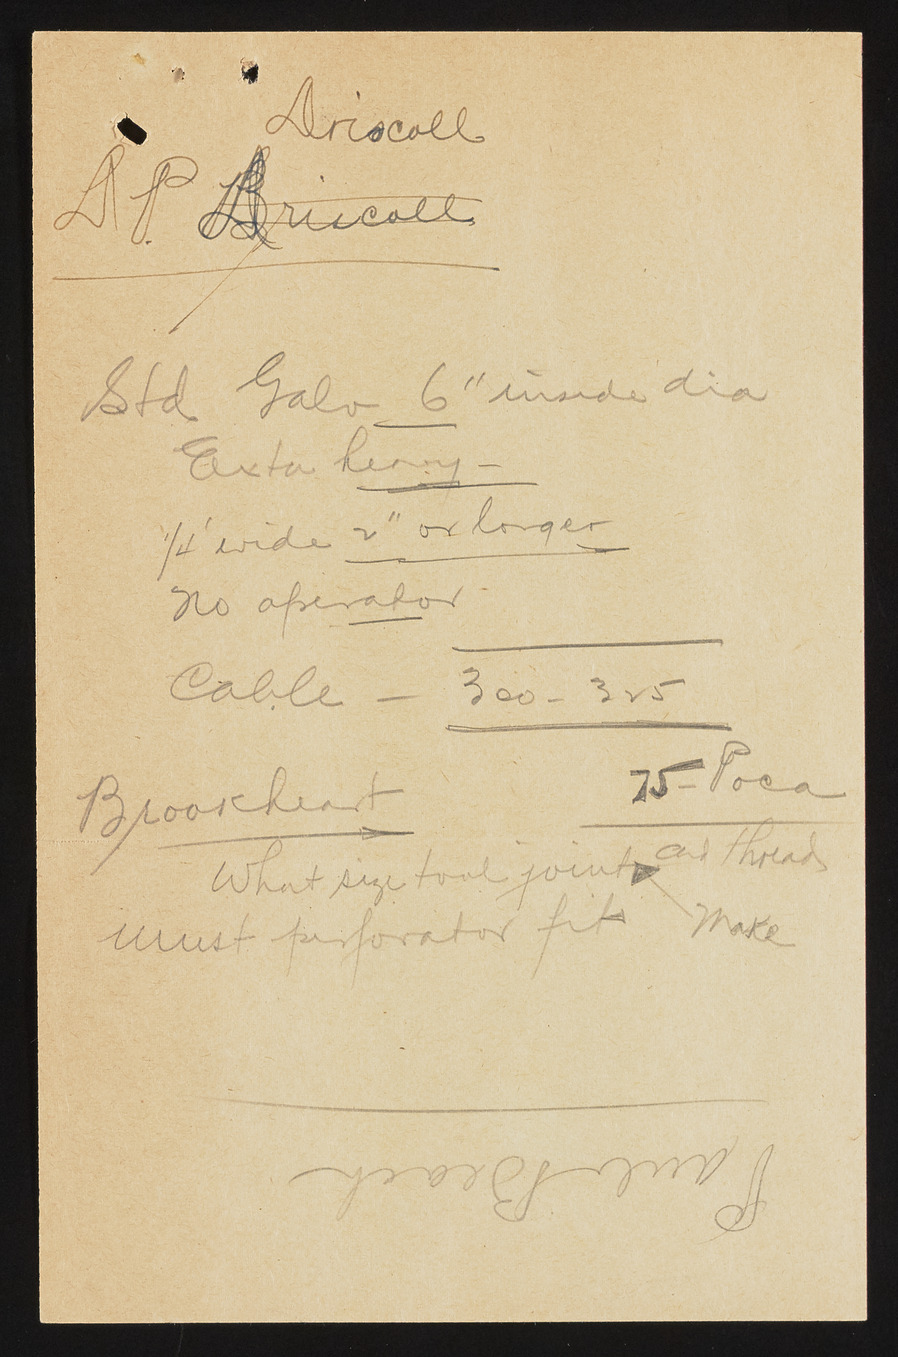 Driscoll
D. P. Briscoll
Std Galv 6" inside dia
Exta heavy -
1/4' wide 2" or longer
No operator
Cable - 300 - 325
75 - Poca
Brookheart
What size tool joint and thread
must perforator fit Make
Paul Beach